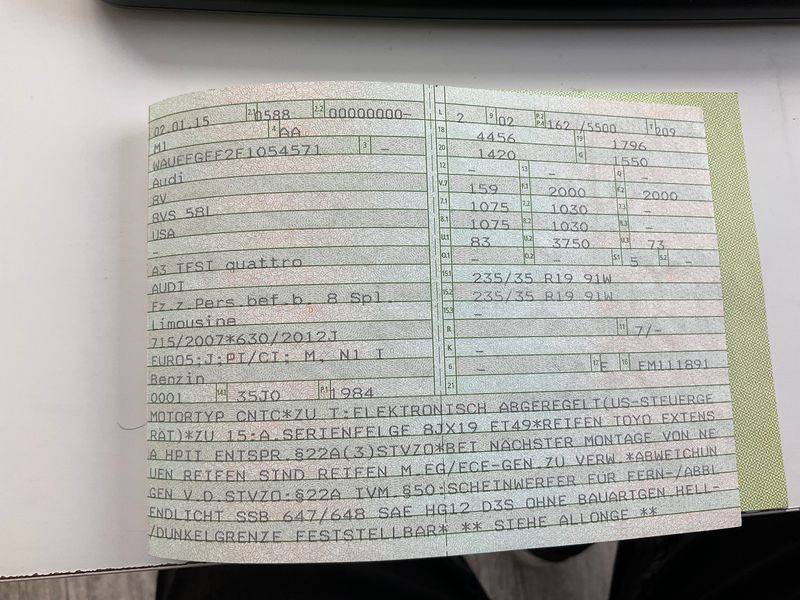 02.01.15 2.1 0588 2.2 00000000-
M1 4 AA
WAUEFGFF2F1054571 3 -
Audi
8V
8VS 58L
USA
-
A3 TEST quattro
AUDI
Fz.z.Pers.bef.b. 8 Spl.
Limousine
715/2007*630/2012J
EURO5;J;PI/CI: M, N1 I
Benzin
0001 14.1 35J0 P.1 1984
L 2 9 02 P.2 P.4 162 /5500 T 209
18 4456 19 1796
20 1420 G 1550
12 - 13 - Q -
V.7 159 F.1 2000 F.2 2000
7.1 1075 7.2 1030 7.3 -
8.1 1075 8.2 1030 8.3 -
U.1 83 U.2 3750 U.3 73
O.1 - O.2 - S.1 5 S.2 -
15.1 235/35 R19 91W
15.2 235/35 R19 91W
15.3 -
R 11 7/-
K -
6 - 17 E 16 FM111891
21
MOTORTYP CNTC*ZU T:ELEKTRONISCH ABGEREGELT(US-STEUERGE
RÄT)*ZU 15:A.SERIENFELGE 8JX19 ET49*REIFEN TOYO EXTENS
A HPII ENTSPR.§22A(3)STVZO*BEI NÄCHSTER MONTAGE VON NE
UEN REIFEN SIND REIFEN M.EG/ECE-GEN.ZU VERW.*ABWEICHUN
GEN V.D.STVZO:§22A IVM.§50:SCHEINWERFER FÜR FERN-/ABBL
ENDLICHT SSB 647/648 SAE HG12 D3S OHNE BAUARTGEN.HELL-
/DUNKELGRENZE FESTSTELLBAR* ** SIEHE ALLONGE **